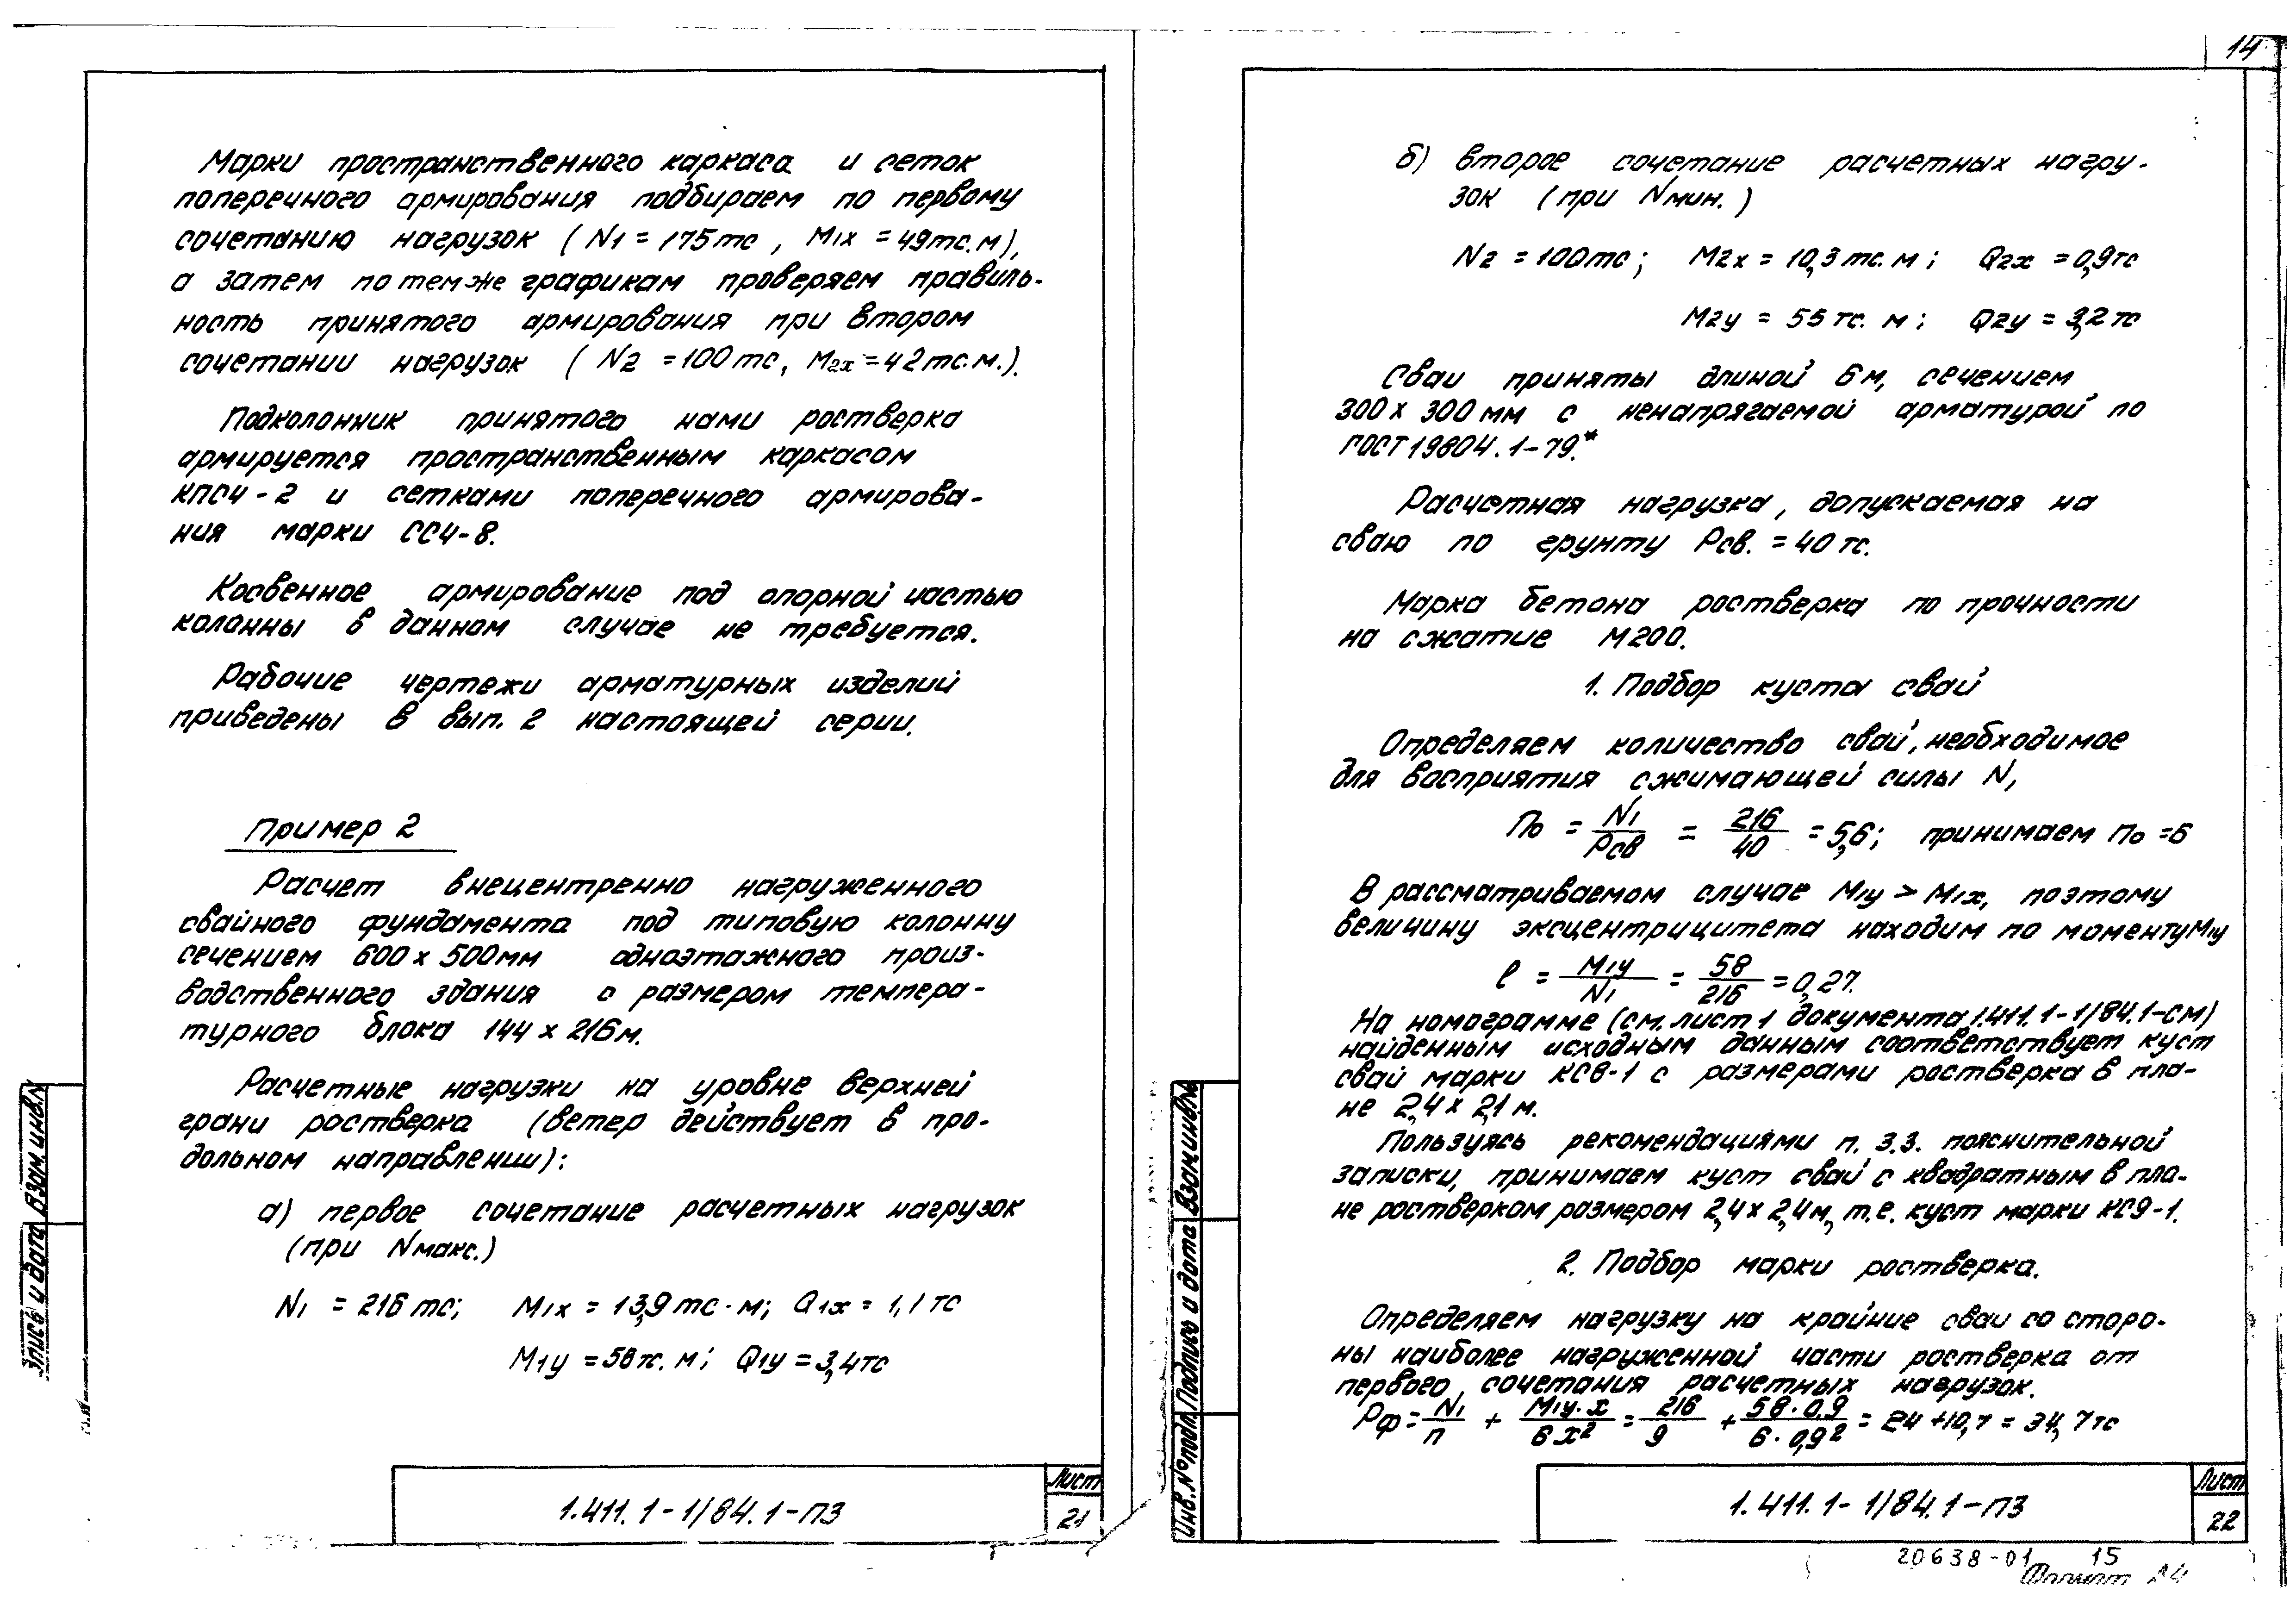 Марки пространственного каркаса и сеток
поперечного армирования подбираем по первому
сочетанию нагрузок (N1 = 175тс, M1x = 49тс.м),
а затем по тем же графикам проверяем правиль-
ность принятого армирования при втором
сочетании нагрузок (N2 = 100тс, M2x = 42тс.м.).
Подколонник принятого нами ростверка
армируется пространственным каркасом
КПС4-2 и сетками поперечного армирова-
ния марки СС4-8.
Косвенное армирование под опорной частью
колонны в данном случае не требуется.
Рабочие чертежи арматурных изделий
приведены в вып. 2 настоящей серии.
Пример 2
Расчет внецентренно нагруженного
свайного фундамента под типовую колонну
сечением 600 x 500мм одноэтажного произ-
водственного здания с размером темпера-
турного блока 144 x 216м.
Расчетные нагрузки на уровне верхней
грани ростверка (ветер действует в про-
дольном направлении):
а) первое сочетание расчетных нагрузок
(при Nмакс.)
N1 = 216 тс; M1x = 13,9 тс·м; Q1x = 1,1 тс
M1y = 58 тс.м; Q1y = 3,4тс
Взам. инв.N
1.411.1-1/84.1-ПЗ
Лист
21
14
б) второе сочетание расчетных нагру-
зок (при Nмин.)
N2 = 100тс; M2x = 10,3 тс.м; Q2x = 0,9тс
M2y = 55 тс.м; Q2y = 3,2 тс
Сваи приняты длиной 6м, сечением
300 x 300 мм с ненапрягаемой арматурой по
ГОСТ 19804.1-79.*
Расчетная нагрузка, допускаемая на
сваю по грунту Pсв. = 40 тс.
Марка бетона ростверка по прочности
на сжатие М200.
1. Подбор куста свай
Определяем количество свай, необходимое
для восприятия сжимающей силы N1
По = N1/Pсв = 216/40 = 5,6; принимаем По = 6
В рассматриваемом случае M1y > M1x, поэтому
величину эксцентрицитета находим по моменту M1y
e = M1y/N1 = 58/216 = 0,27.
На номограмме (см. лист 1 документа 1.411.1-1/84.1-СМ)
найденным исходным данным соответствует куст
свай марки КС8-1 с размерами ростверка в пла-
не 2,4 x 2,1 м.
Пользуясь рекомендациями п. 3.3. пояснительной
записки, принимаем куст свай с квадратным в пла-
не ростверком размером 2,4 x 2,4м, т.е. куст марки КС9-1.
2. Подбор марки ростверка.
Определяем нагрузку на крайние сваи со сторо-
ны наиболее нагруженной части ростверка от
первого сочетания расчетных нагрузок.
Pф = N1/п + M1y·x/6x² = 216/9 + 58·0,9/6·0,9² = 24 + 10,7 = 34,7 тс
Инв. № подл. Подпись и дата Взам инв N
1.411.1-1/84.1-ПЗ
Лист
22
20638-01 15
Формат А4